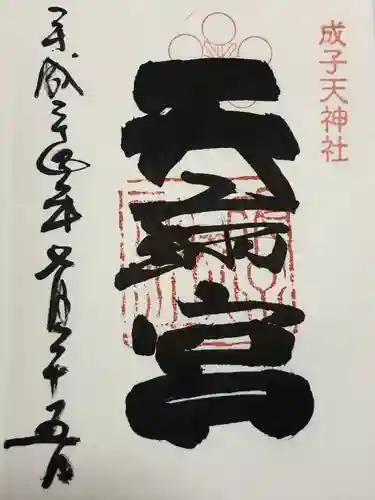 成子天神社
天満宮
平成二十年七月二十五日